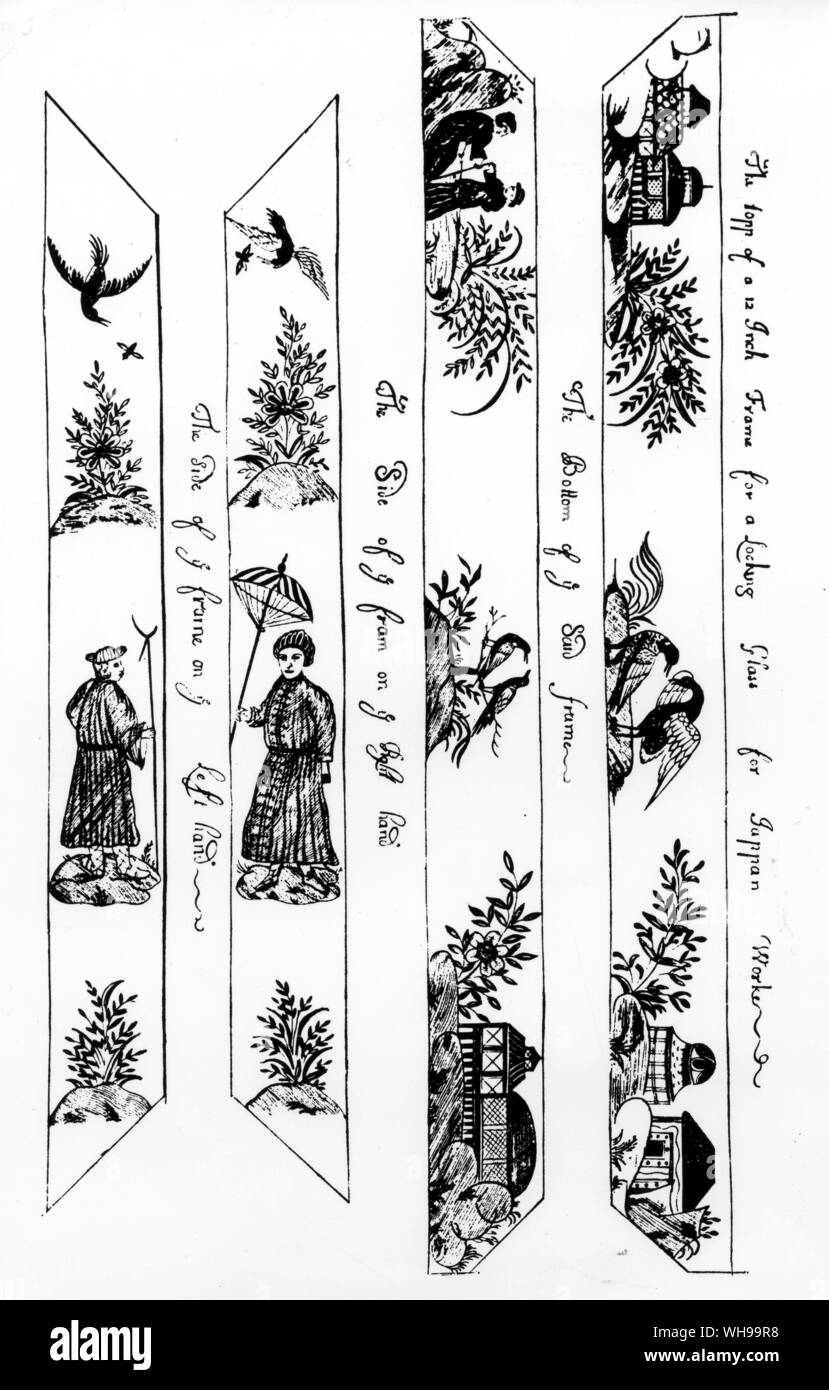 The topp of a 12 Inch Frame for a Looking Glass for Jappan Worke
The Bottom of ye Said frame
The Side of ye fram on ye Right hand
The Side of ye frame on ye left hand
a
alamy
alamy
Image ID: WH99R8
www.alamy.com